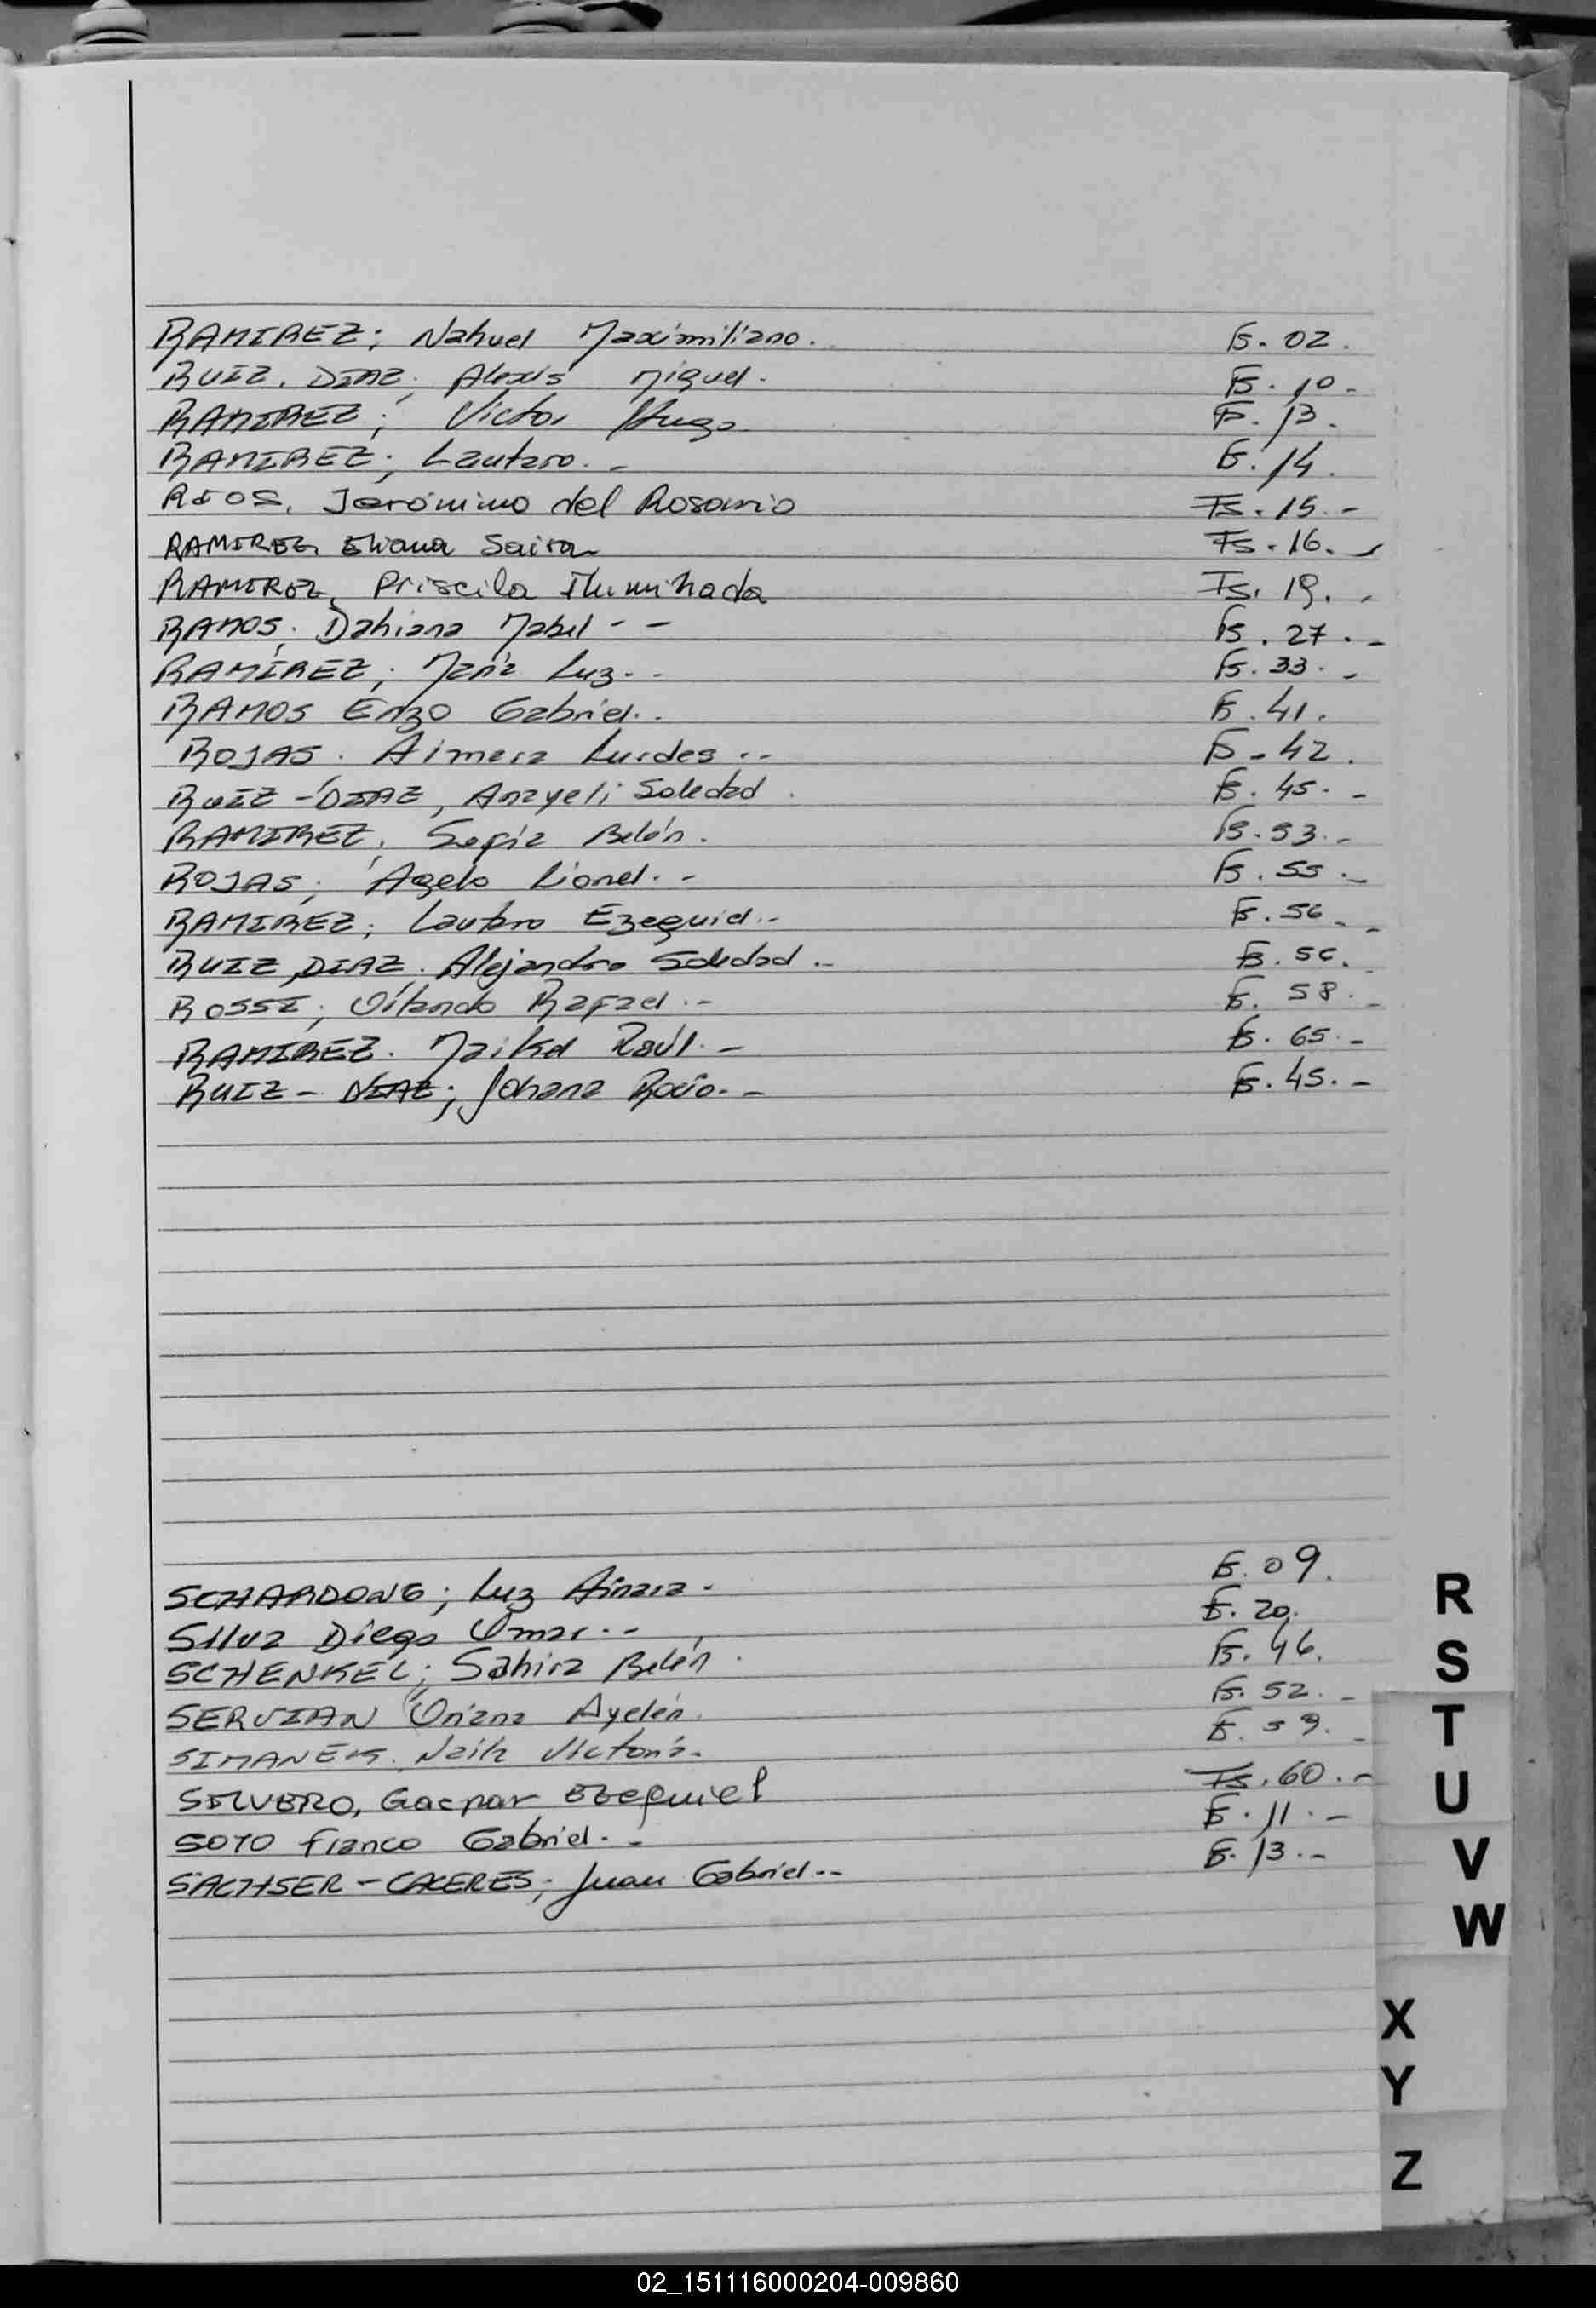 RAMIREZ; Nahuel Maximiliano. Fs. 02.
RUIZ. DIAZ. Alexis Miguel. Fs. 10-
RAMIREZ; Victor Hugo Fs. 13.
RAMIREZ; Lautaro. - Fs. 14.
RIOS, Jerónimo del Rosario Fs. 15. -
RAMIREZ, Eliana Saira Fs. 16. -
RAMIREZ, Priscila Iluminada Fs. 19. -
RAMOS; Dahiana Mabel - - Fs. 27. -
RAMÍREZ; María Luz. - Fs. 33. -
RAMOS Enzo Gabriel. . Fs. 41.
ROJAS. Aimara Lurdes .. Fs - 42.
RUIZ - DIAZ, Anayeli Soledad. Fs. 45. -
RAMIREZ; Sofía Belén. Fs. 53. -
ROJAS; Agelo Lionel. - Fs. 55. -
RAMIREZ; Lautaro Ezequiel.. Fs. 56. -
RUIZ DIAZ. Alejandra Soledad .. Fs. 56.
ROSSI; Orlando Rafael. - Fs. 58. -
RAMIREZ. Maikel Raúl. - Fs. 65. -
RUIZ - DIAZ; Johana Rocío. - Fs. 45. -
SCHARDONG; Luz Ainara. Fs. 09.
Silva Diego Omar. - Fs. 20.
SCHENKEL; Sahira Belén. Fs. 46.
SERVIAN Oriana Ayelén. Fs. 52. -
SIMANEK. Victoria. Fs. 59. -
SILVERO, Gaspar Ezequiel Fs. 60. -
SOTO Franco Gabriel. - Fs. 11. -
SACHSER - CACERES; Juan Gabriel.. Fs. 13. -
R
S
T
U
V
W
X
Y
Z
02_151116000204-009860